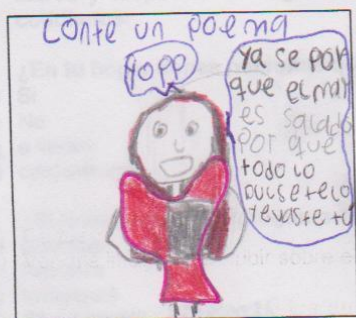 Conte un poema
Yopp
Ya se por
que el mar
es salado
por que
todo lo
dulse telo
llevaste tú